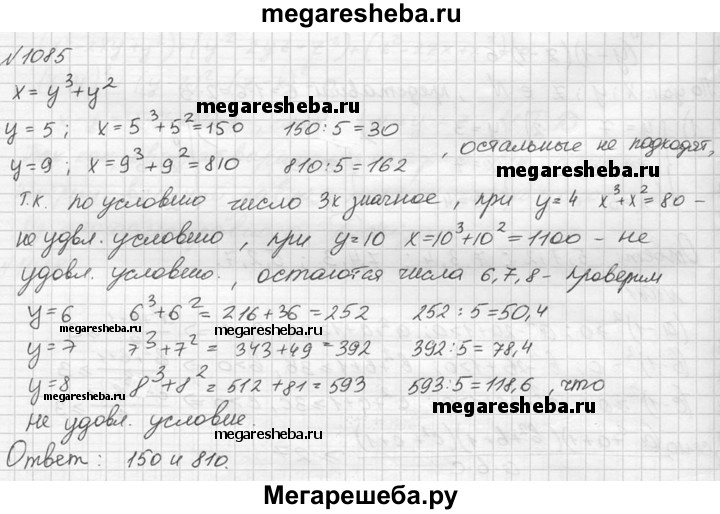 megaresheba.ru
№1085
x = y³ + y²
megaresheba.ru
y = 5 ; x = 5³ + 5² = 150 150 : 5 = 30
y = 9 ; x = 9³ + 9² = 810 810 : 5 = 162 , остальные не подходят,
megaresheba.ru
т.к. по условию число 3х значное , при y = 4 x³ + x² = 80 –
не удвл. условию , при y = 10 x = 10³ + 10² = 1100 – не
удовл. условию. , остаются числа 6, 7, 8 - проверим
y = 6 6³ + 6² = 216 + 36 = 252 252 : 5 = 50,4
megaresheba.ru
megaresheba.ru
y = 7 7³ + 7² = 343 + 49 = 392 392 : 5 = 78,4
y = 8 8³ + 8² = 512 + 81 = 593 593 : 5 = 118,6 , что
megaresheba.ru
не удовл. условие.
megaresheba.ru
Ответ : 150 и 810.
Мегарешеба.ру